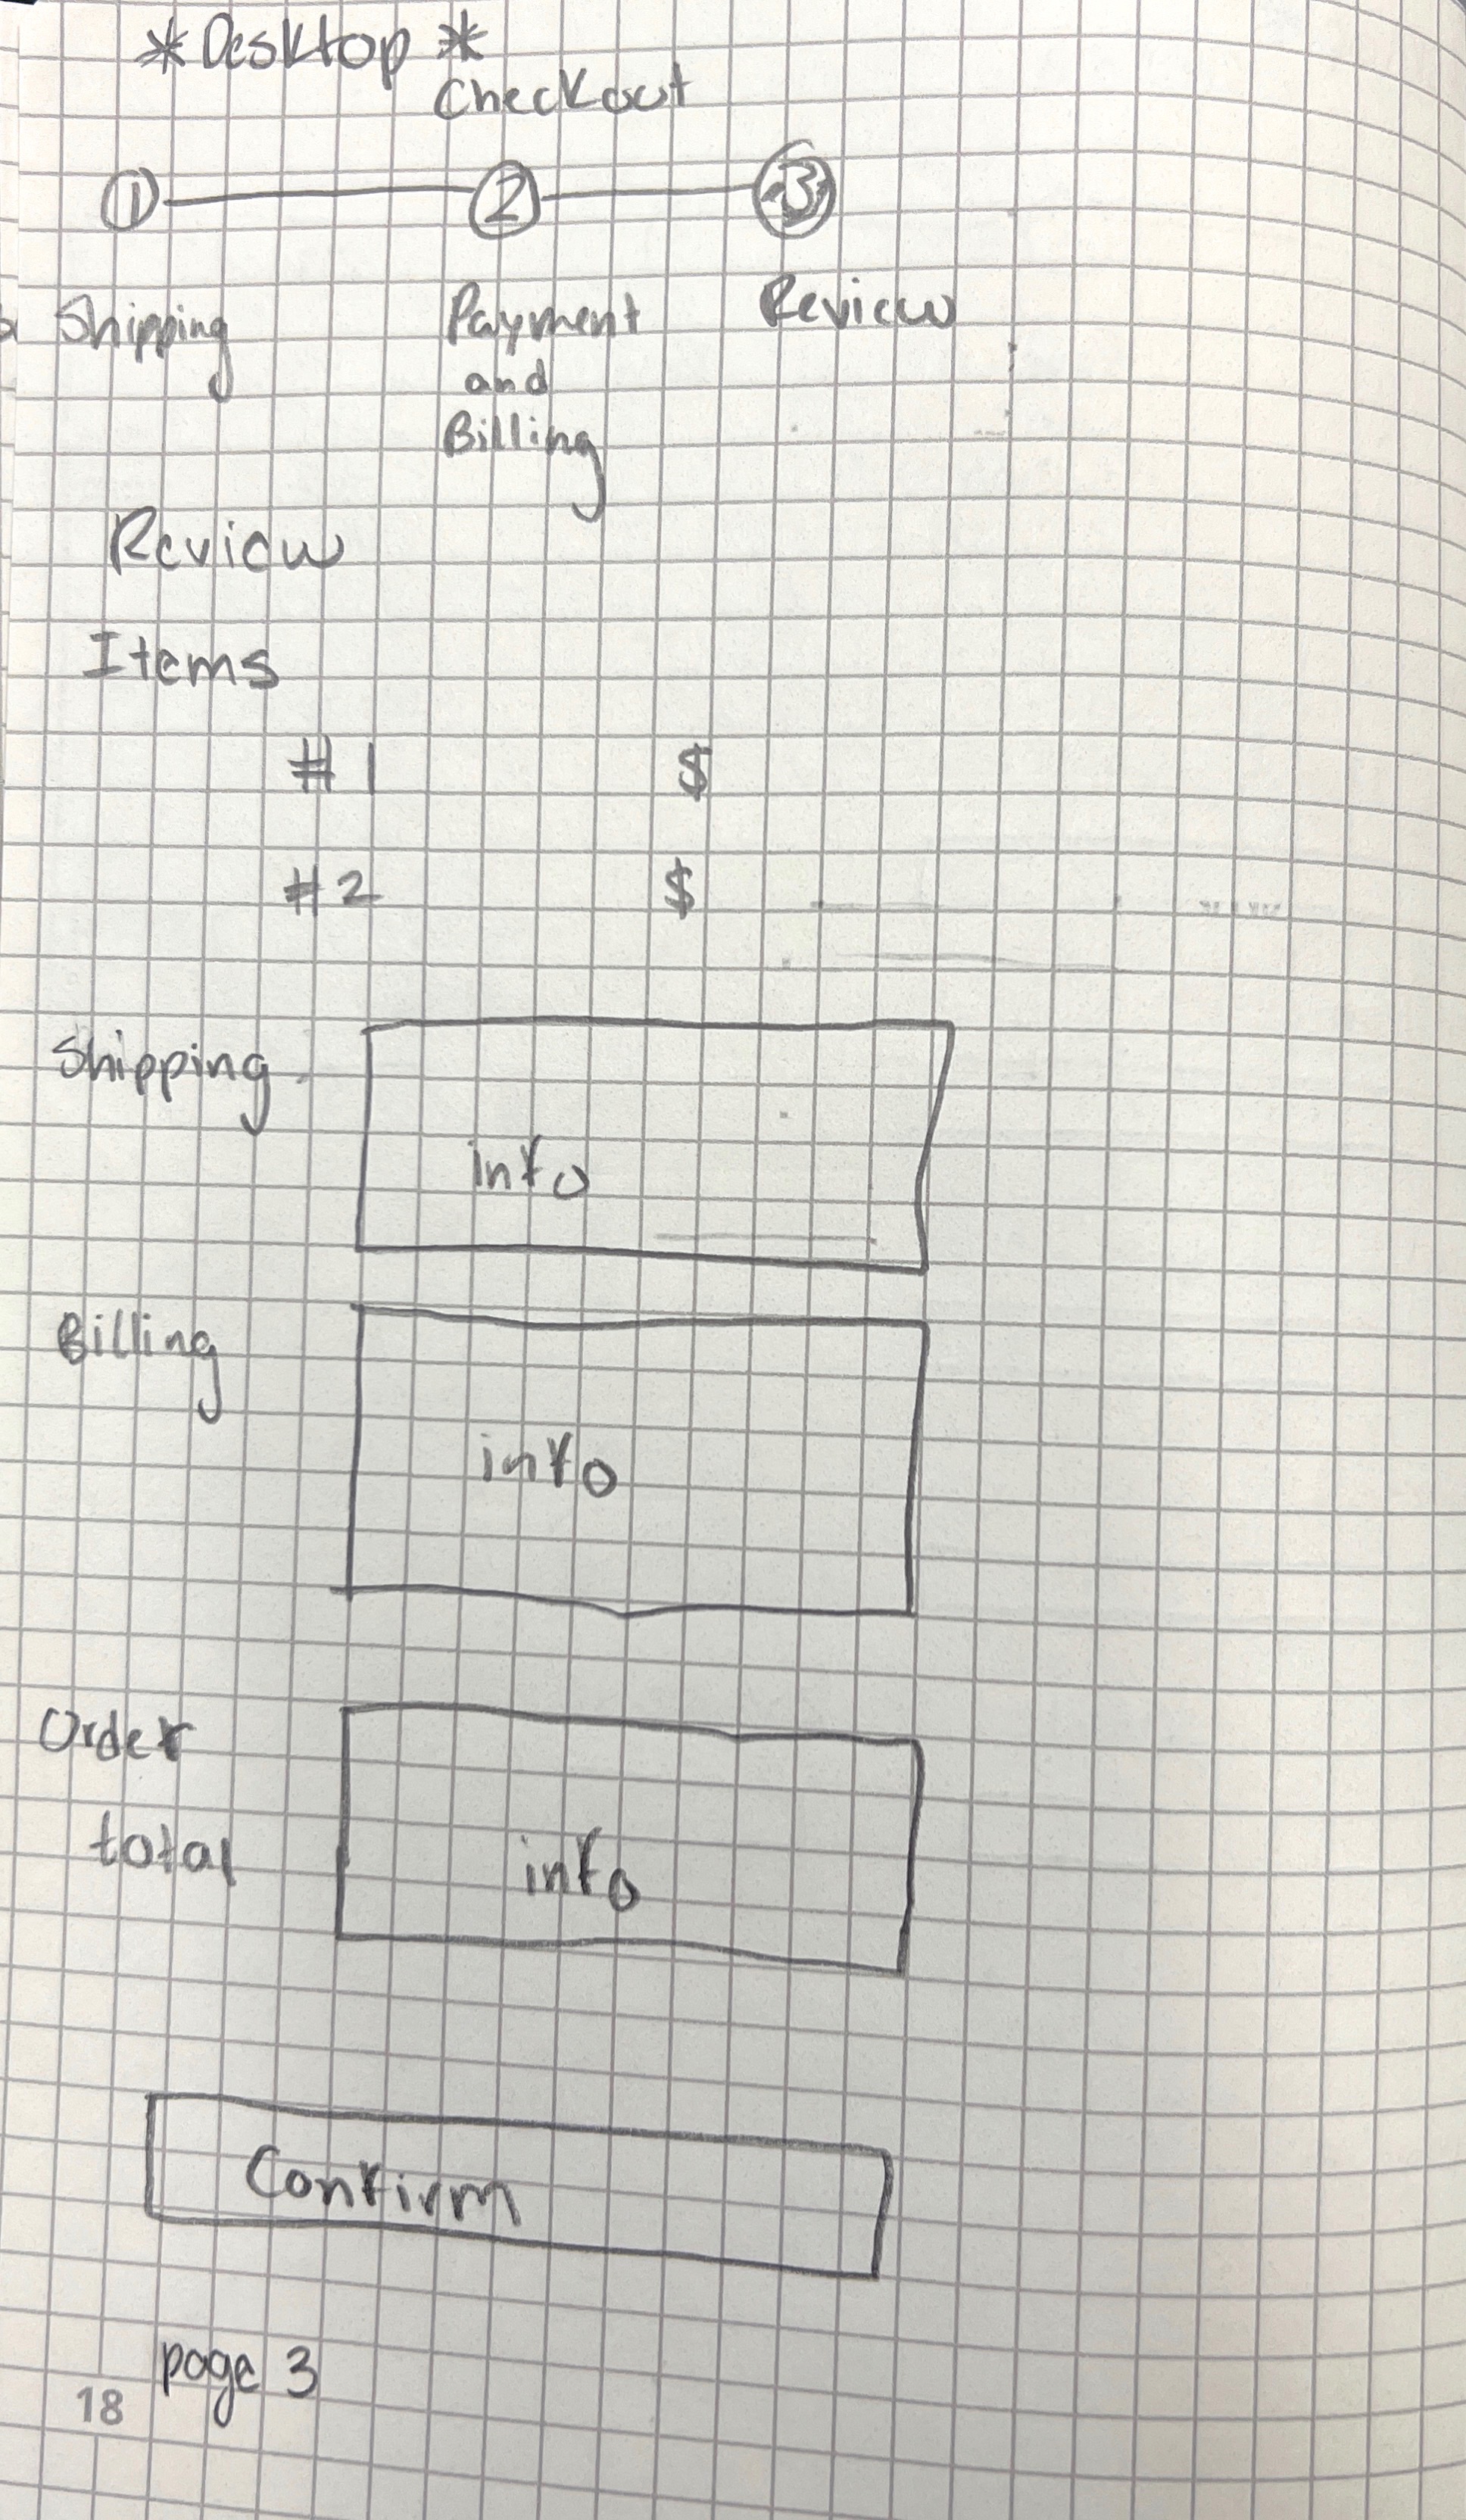 *Desktop*
Checkout
1 2 3
Shipping Payment and Billing Review
Review
Items
#1 $
#2 $
Shipping
info
Billing
info
Order
total
info
Confirm
page 3
18